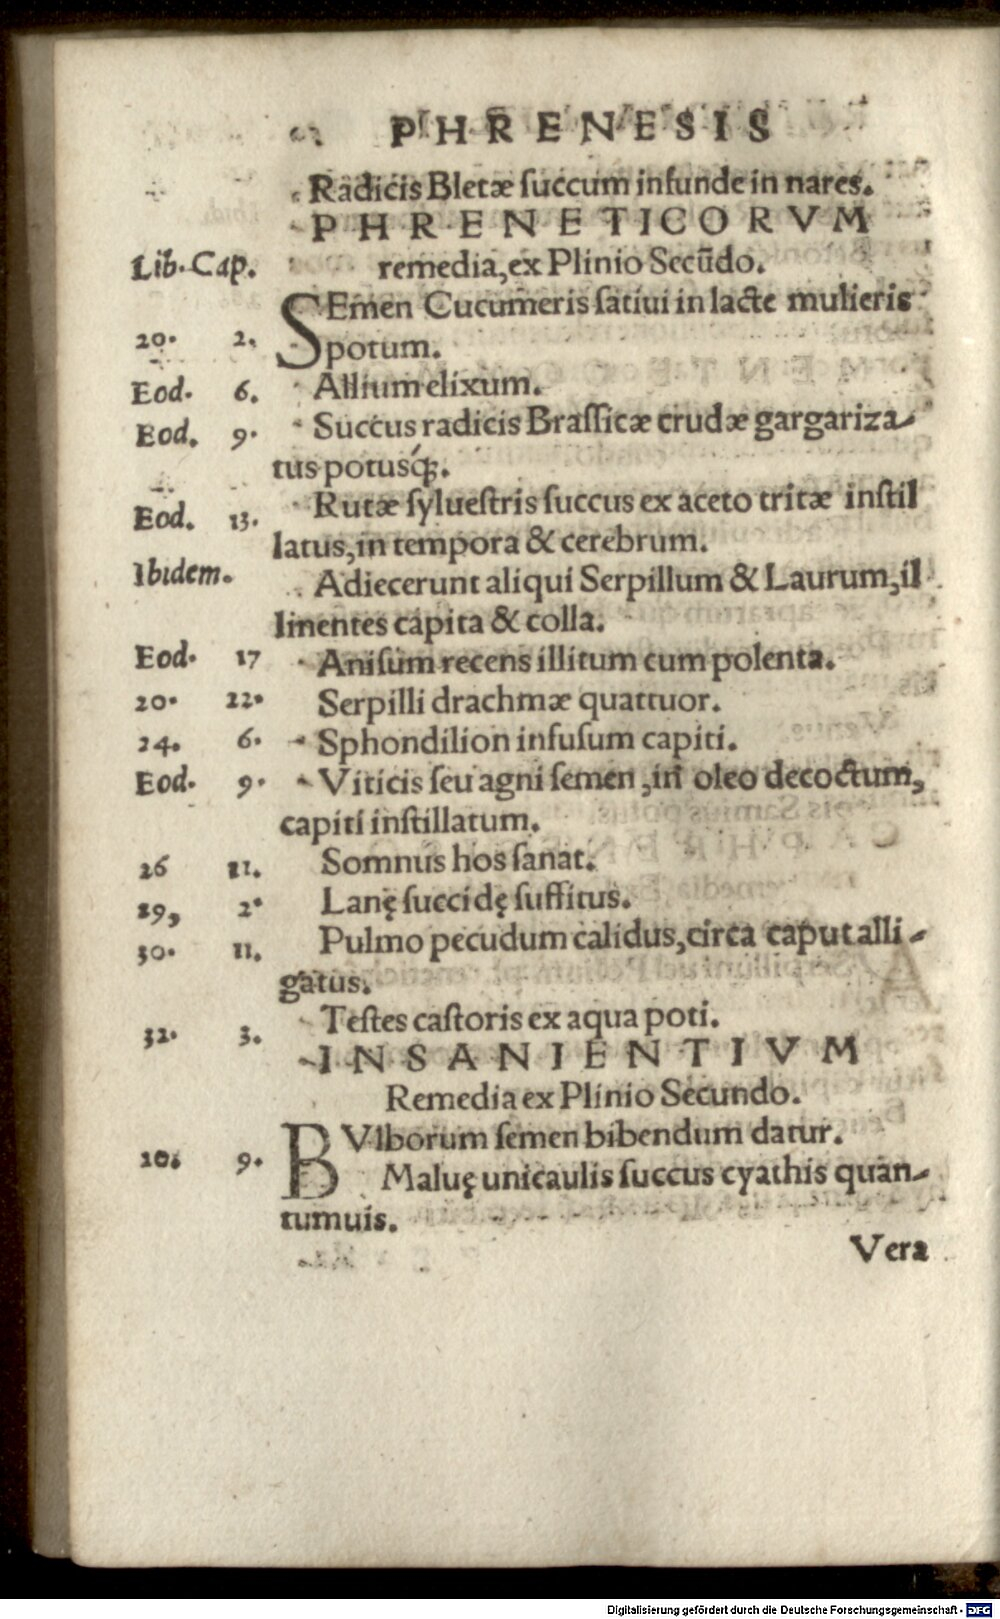 PHRENESIS
Radicis Bletæ ſuccum infunde in nares.
PHRENETICORVM
Lib. Cap. remedia, ex Plinio Secūdo.
SEmen Cucumeris ſatiui in lacte mulieris
20. 2. potum.
Eod. 6. Allium elixum.
Eod. 9. Succus radicis Braſſicæ crudæ gargariza-
tus potusq́;.
Eod. 13. Rutæ ſylueſtris ſuccus ex aceto tritæ inſtil
latus, in tempora & cerebrum.
Ibidem. Adiecerunt aliqui Serpillum & Laurum, il
linentes capita & colla.
Eod. 17 Aniſum recens illitum cum polenta.
20. 22. Serpilli drachmæ quattuor.
24. 6. Sphondilion infuſum capiti.
Eod. 9. Viticis ſeu agni ſemen, in oleo decoctum,
capiti inſtillatum.
26 11. Somnus hos ſanat.
29, 2. Lanę ſuccidę ſuffitus.
30. 11. Pulmo pecudum calidus, circa caput alli-
gatus.
32. 3. Teſtes caſtoris ex aqua poti.
INSANIENTIVM
Remedia ex Plinio Secundo.
BVlborum ſemen bibendum datur.
20. 9. Maluę unicaulis ſuccus cyathis quan-
tumuis.
Vera
Digitalisierung gefördert durch die Deutsche Forschungsgemeinschaft - DFG